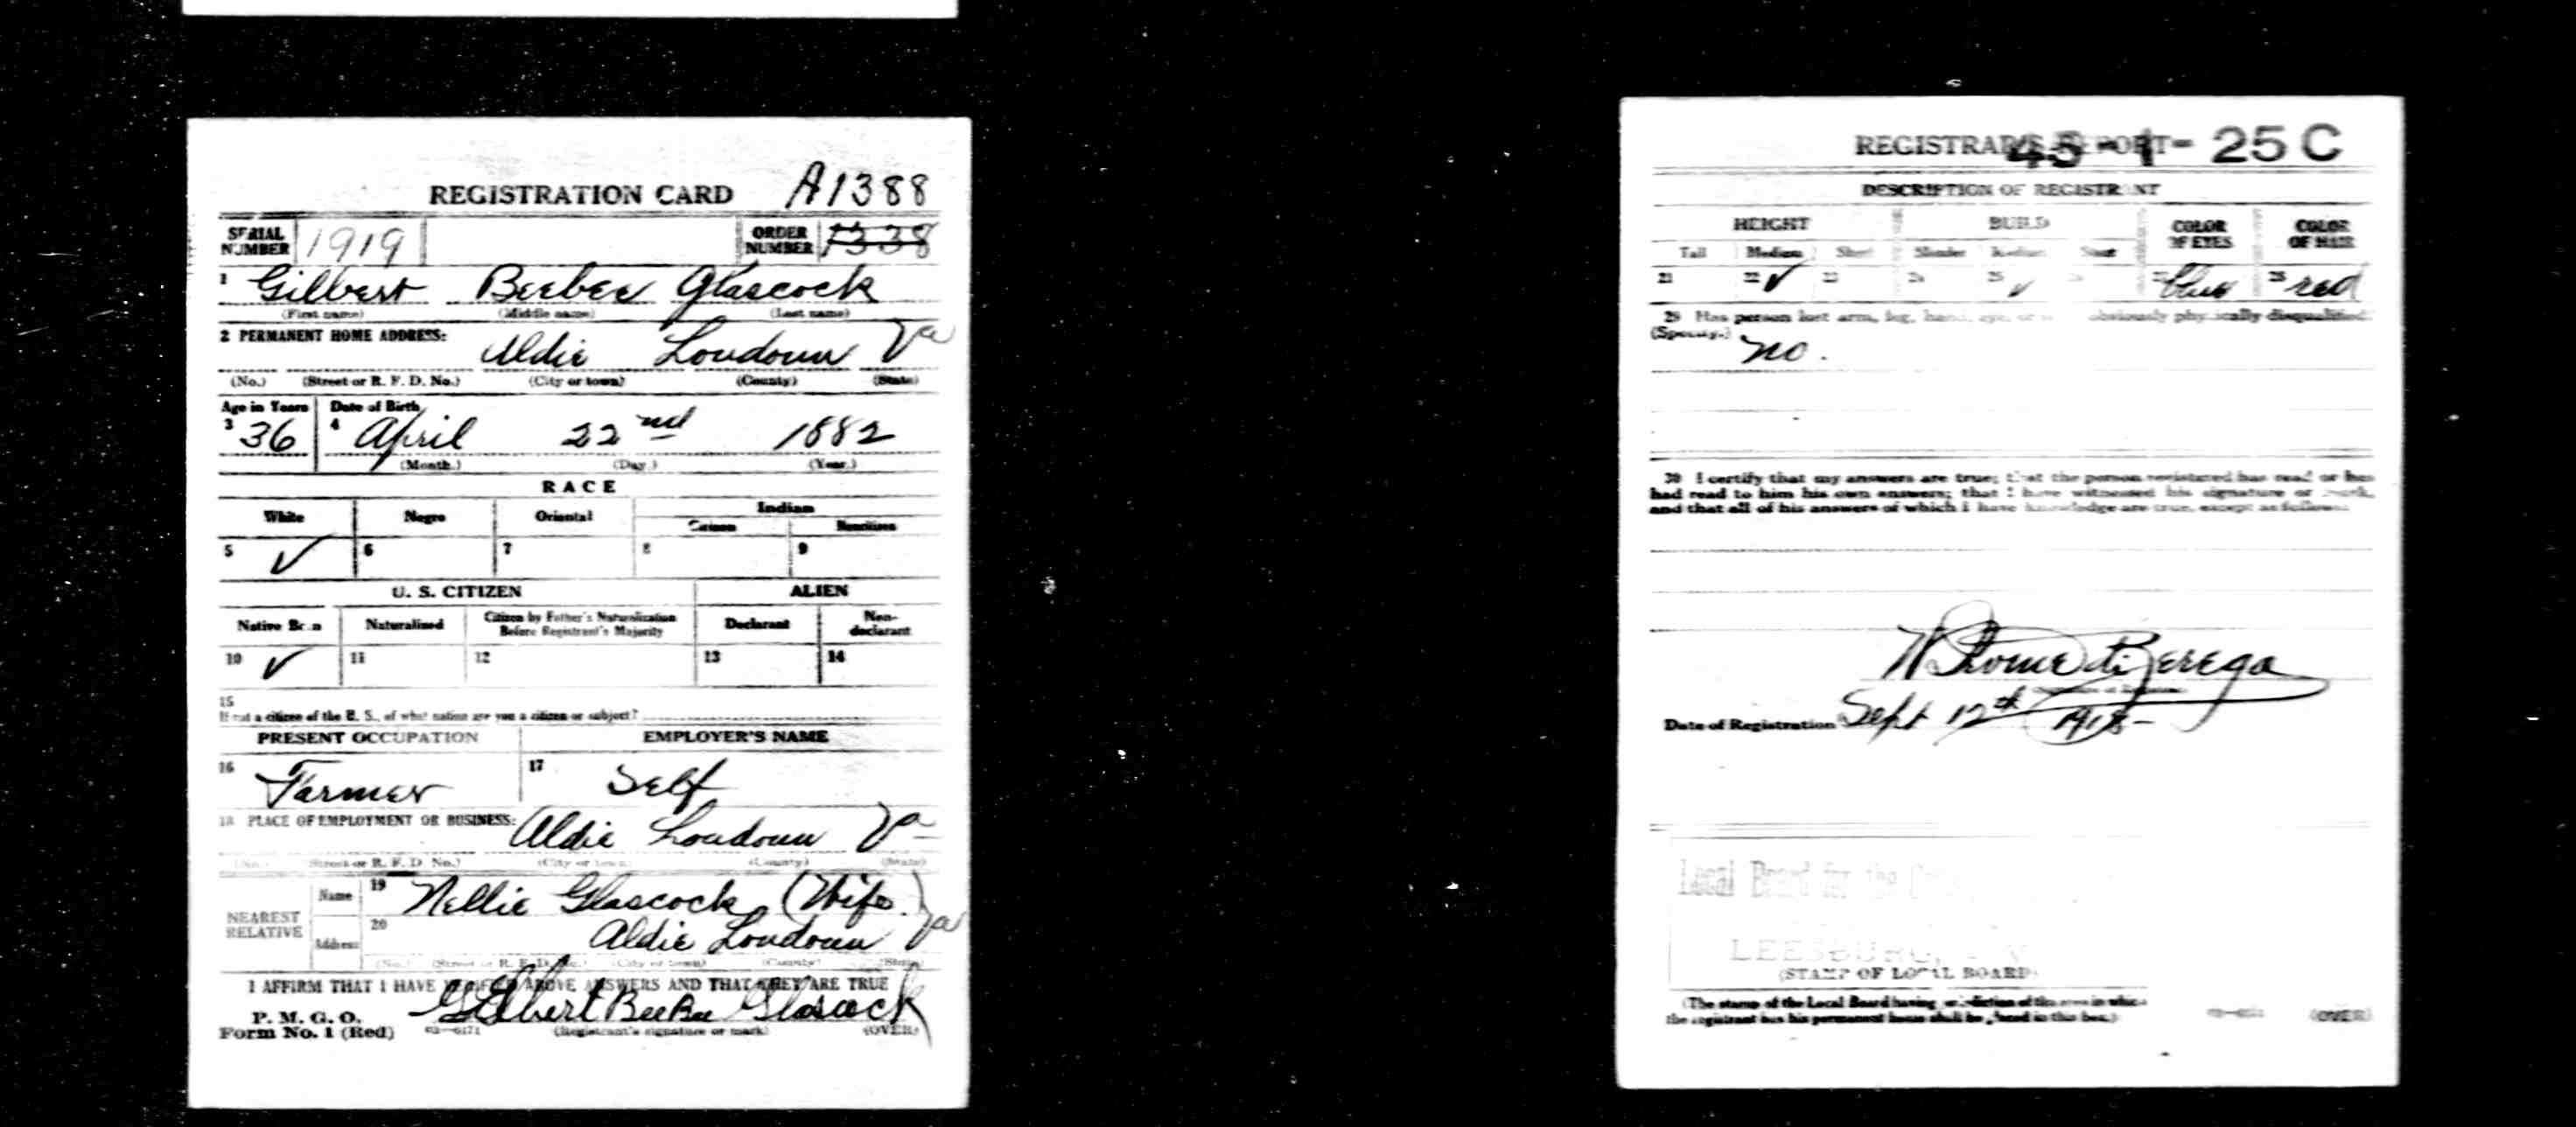 REGISTRATION CARD A1388
SERIAL NUMBER 1919 ORDER NUMBER 1338
1 Gilbert Beebee Glascock
(First name) (Middle name) (Last name)
2 PERMANENT HOME ADDRESS:
Aldie Loudoun Va
(No.) (Street or R. F. D. No.) (City or town) (County) (State)
Age in Years Date of Birth
3 36 4 April 22nd 1882
(Month.) (Day.) (Year.)
RACE
White Negro Oriental Indian
Citizen Noncitizen
5 ✓ 6 7 8 9
U. S. CITIZEN ALIEN
Native Born Naturalized Citizen by Father's Naturalization Before Registrant's Majority Declarant Non-declarant
10 ✓ 11 12 13 14
15
If not a citizen of the U. S., of what nation are you a citizen or subject?
PRESENT OCCUPATION EMPLOYER'S NAME
16 Farmer 17 Self
18 PLACE OF EMPLOYMENT OR BUSINESS:
Aldie Loudoun Va
(No.) (Street or R. F. D. No.) (City or town) (County) (State)
NEAREST RELATIVE Name 19 Nellie Glascock (Wife)
Address 20 Aldie Loudoun Va
(No.) (Street or R. F. D. No.) (City or town) (County) (State)
I AFFIRM THAT I HAVE VERIFIED ABOVE ANSWERS AND THAT THEY ARE TRUE
P. M. G. O.
Form No. 1 (Red) 03—6171 Gilbert BeeBee Glascock
(Registrant's signature or mark) (OVER)
REGISTRAR'S REPORT 45-1-25 C
DESCRIPTION OF REGISTRANT
HEIGHT BUILD COLOR OF EYES COLOR OF HAIR
Tall Medium Short Slender Medium Stout
21 22 ✓ 23 24 25 ✓ 27 blue 28 red
29 Has person lost arm, leg, hand, eye, or obviously physically disqualified?
(Specify.) no.
30 I certify that my answers are true; that the person registered has read or has
had read to him his own answers; that I have witnessed his signature or mark,
and that all of his answers of which I have knowledge are true, except as follows:
di Zerega
Date of Registration Sept 12th 1918-
Local Board for the
LEESBURG,
(STAMP OF LOCAL BOARD)
(The stamp of the Local Board having jurisdiction of the area in which
the registrant has his permanent home shall be placed in this box.)
(OVER)